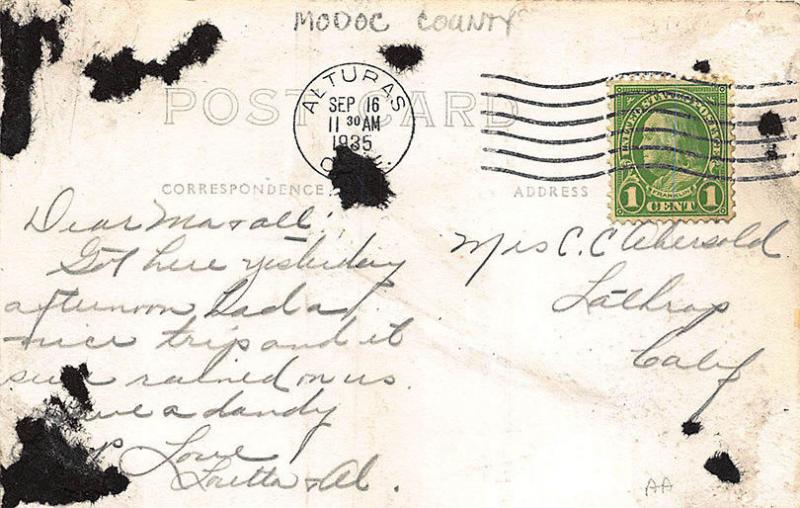 MODOC COUNTY
POST CARD
ALTURAS
SEP 16
11 30 AM
1935
CORRESPONDENCE
ADDRESS
UNITED STATES POSTAGE
FRANKLIN
1 CENT 1
Dear Ma & all:
Got here yesterday
afternoon had a
nice trip and it
sure rained on us.
a dandy
Love
Loretta & Al.
Mrs C. C. Abersold
Lathrop
Calif
AA